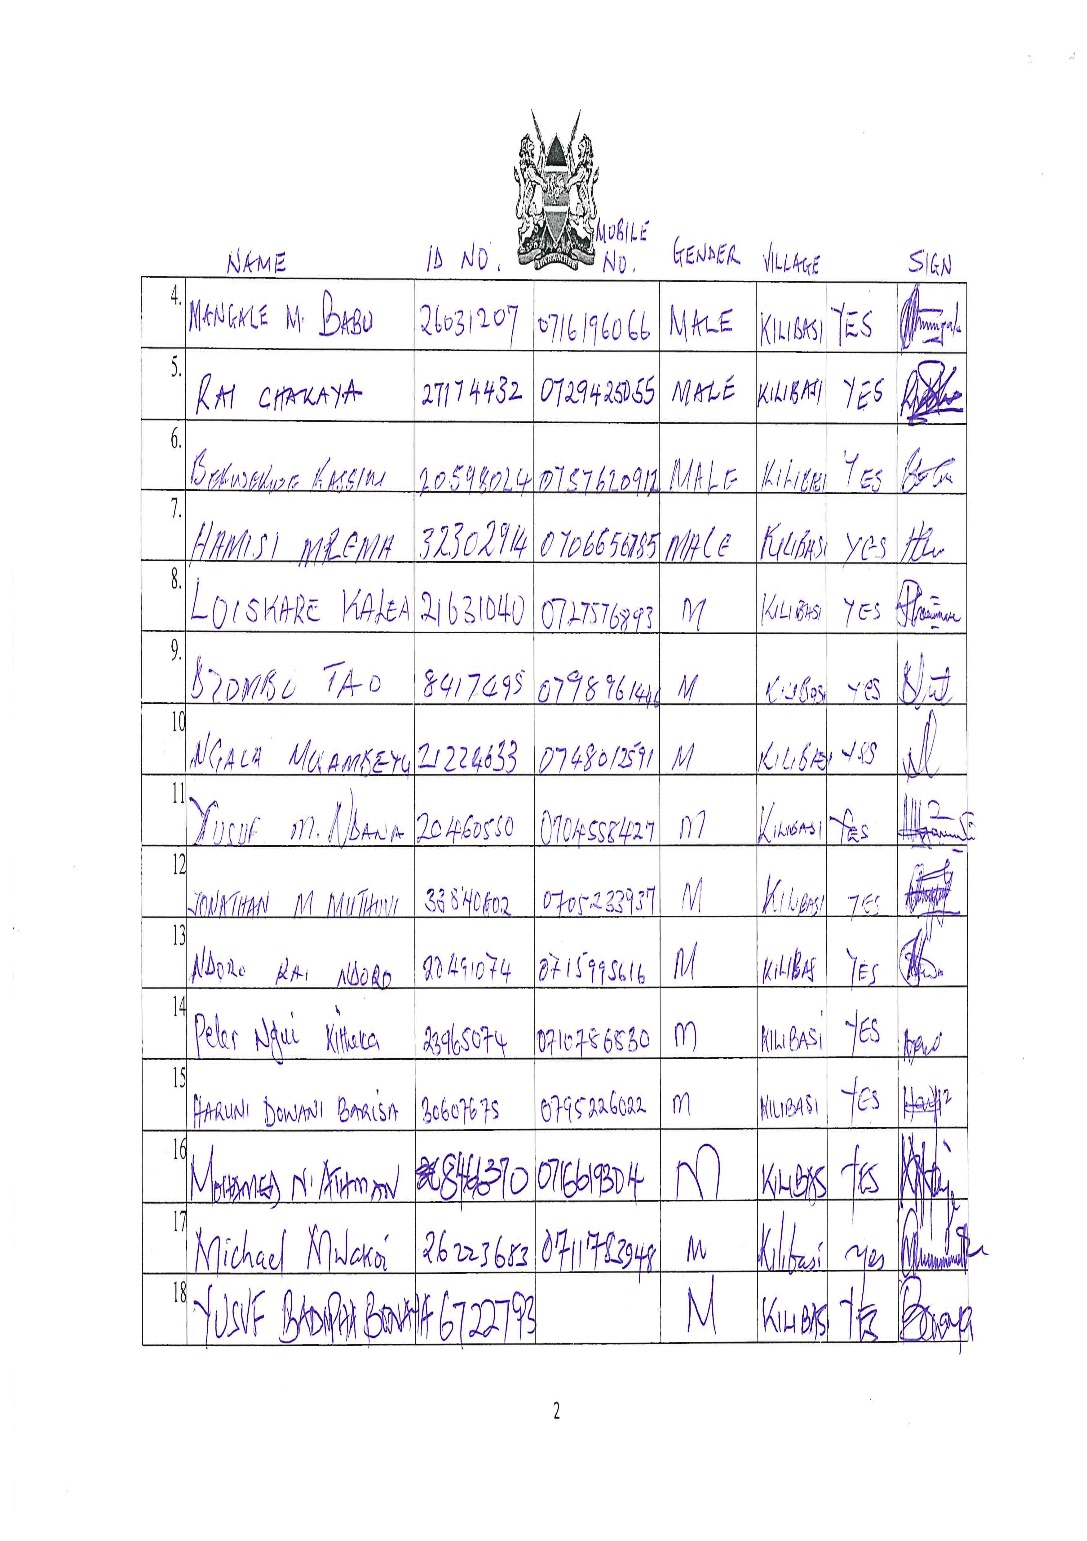 NAME ID NO. MOBILE NO. GENDER VILLAGE SIGN
4. MANGALE M. BABU 26031207 0716196066 MALE KILIBASI YES
5. RAI CHAKAYA 27174432 0729425055 MALE KILIBASI YES
6. KASSIM 20598024 0757620912 MALE KILIBASI YES
7. HAMISI MREMA 32302914 0706656785 MALE KILIBASI YES
8. LOISKARE KALEA 21631040 0727576893 M KILIBASI YES
9. TAO M KILIBASI YES
10 NGALA 21224633 0748012591 M KILIBASI YES
11 YUSUF M. 20460550 0704558427 M KILIBASI YES
12 JONATHAN M MUTHUVI 0705233937 M KILIBASI YES
13 NDORO RAI NDORO 20491074 0715995616 M KILIBAS YES
14 Peter Ngui Kitheka 23965074 0710786830 M KILIBASI YES
15 HARUNI DOWANI BARISA 30607675 0795226022 M KILIBASI YES
16 MOHAMED N. ATHMAN M KILIBAS YES
17 Michael Mwakoi 26223683 0711783948 M Kilibasi Yes
18 YUSUF 6722793 M KILIBAS YES
2